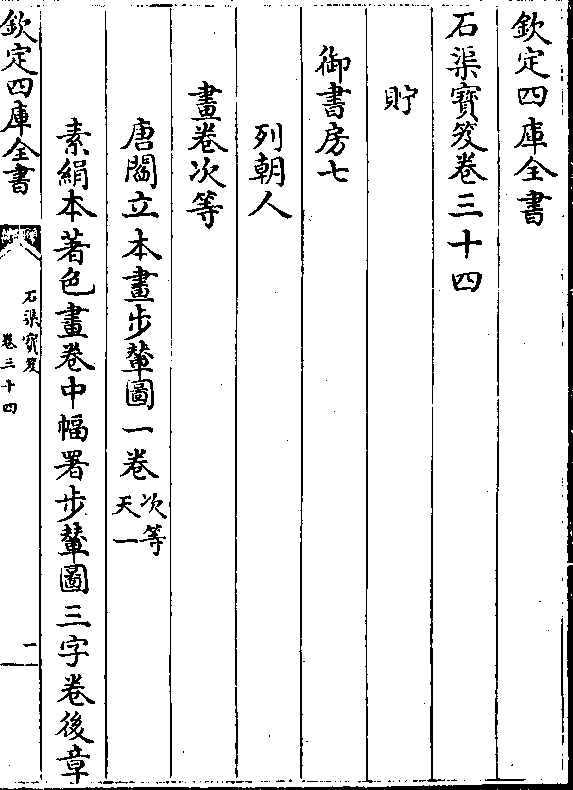 欽定四庫全書
石渠寶笈卷三十四
貯
御書房七
列朝人
畫卷次等
唐閻立本畫步輦圖一卷次等天一
素絹本著色畫卷中幅署步輦圖三字卷後章
欽定四庫全書
石渠寶笈
卷三十四
一